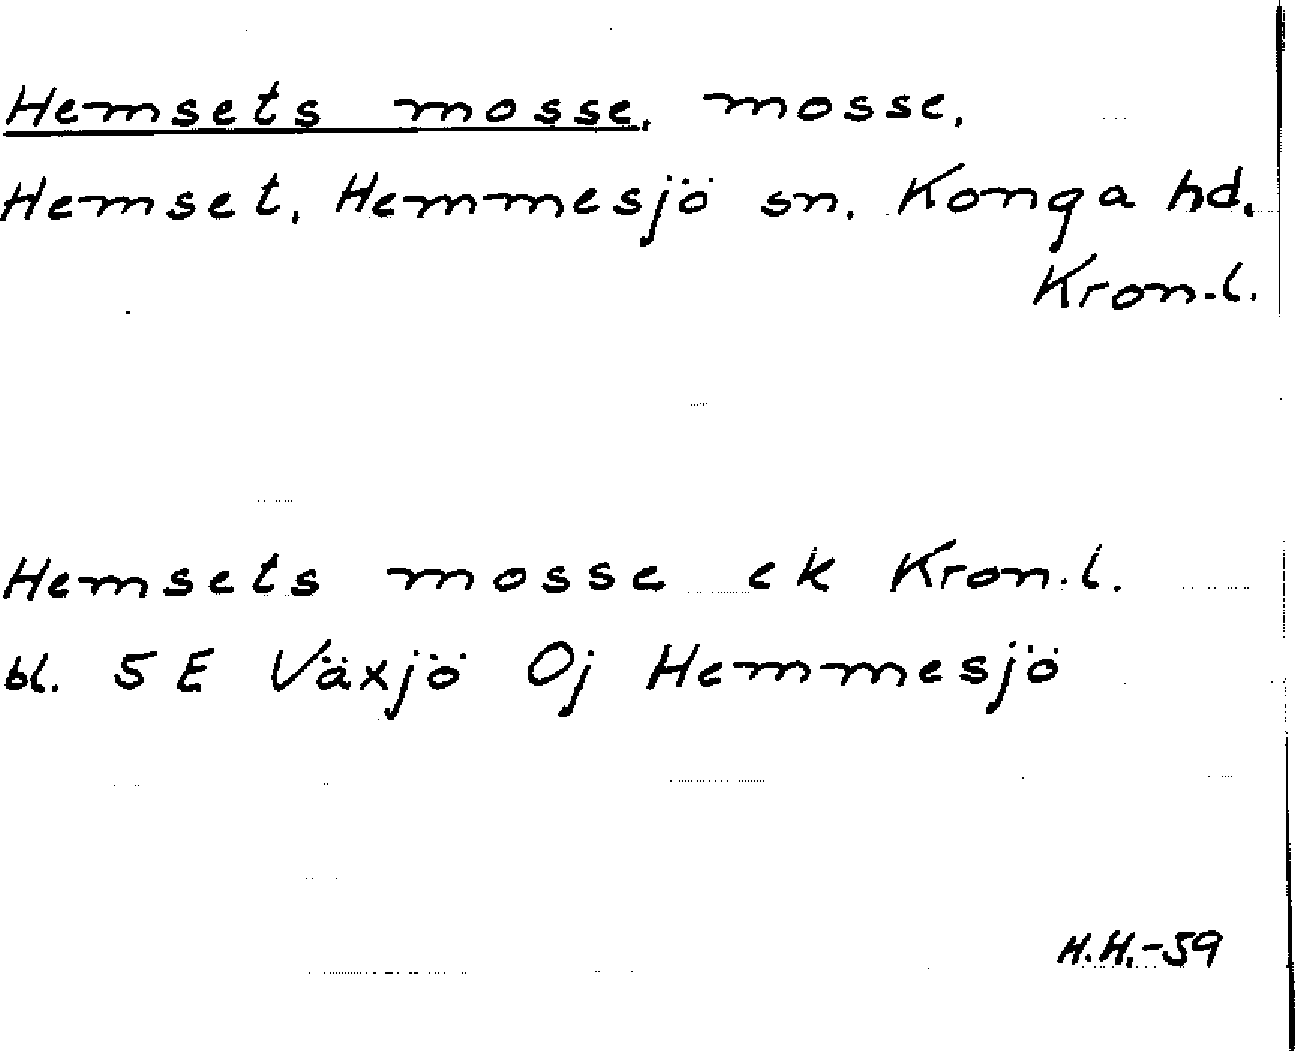 Hemsets mosse, mosse,
Hemset, Hemmesjö sn, Konga hd,
Kron.l.
Hemsets mosse ek Kron.l.
bl. 5 E Växjö Oj Hemmesjö
H.H.-59